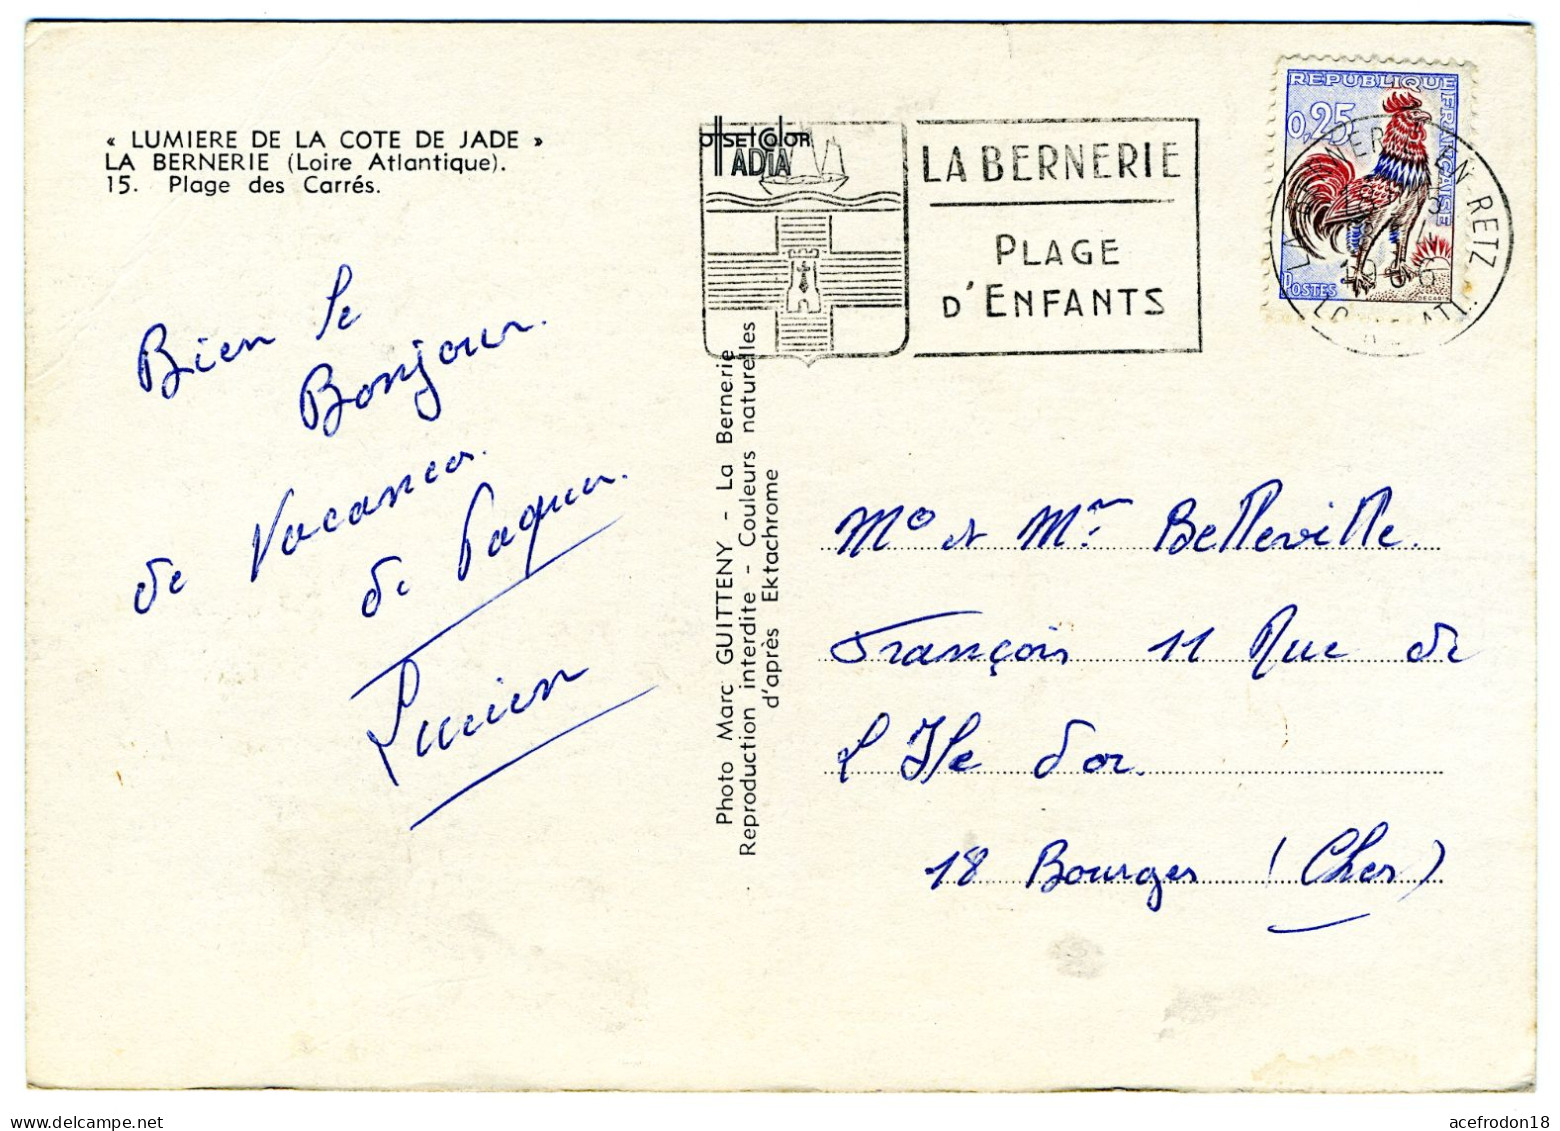 « LUMIERE DE LA COTE DE JADE »
LA BERNERIE (Loire Atlantique).
15. Plage des Carrés.
Bien le
Bonjour.
de Vacances.
de Paques.
Lucien
OffsetColor
ADIA
Photo Marc GUITTENY - La Bernerie
Reproduction interdite - Couleurs naturelles
d'après Ektachrome
LA BERNERIE
PLAGE
D'ENFANTS
REPUBLIQUE
FRANÇAISE
0,25
POSTES
DECARIS
EN-RETZ
Me et Mr Belleville.
François 11 Rue de
L'Ile d'or.
18 Bourges (Cher)
acefrodon18